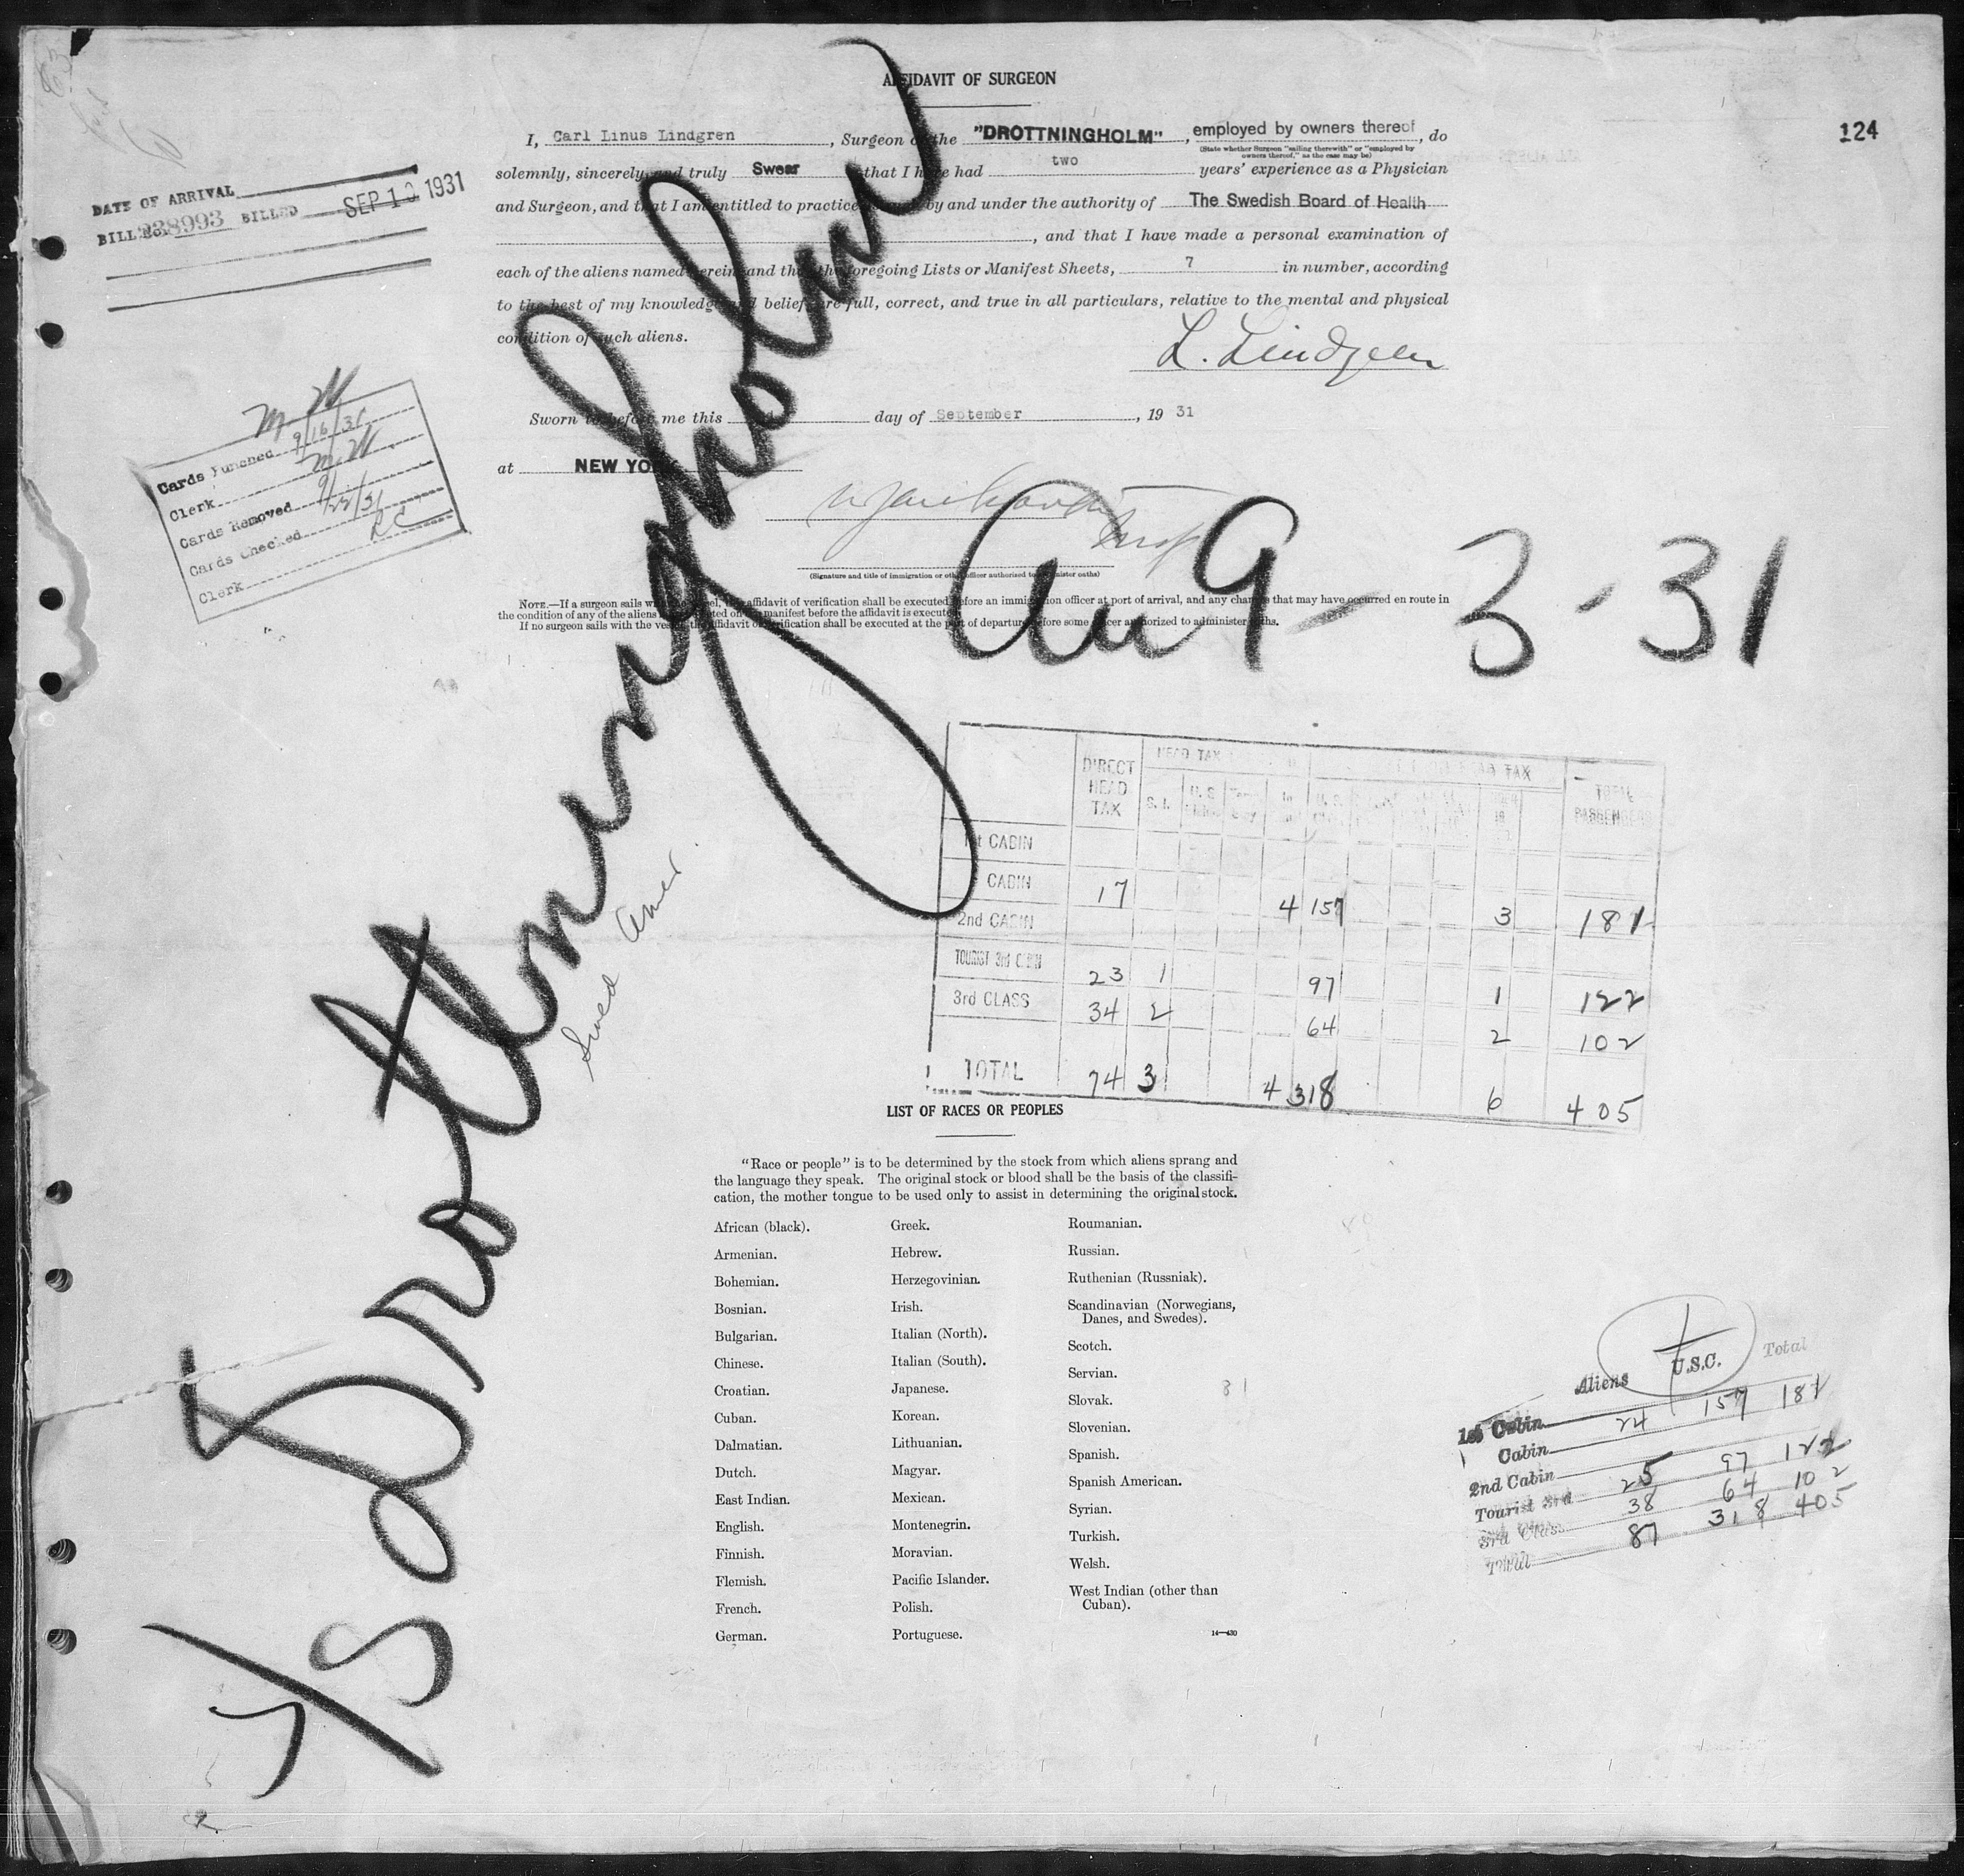 AFFIDAVIT OF SURGEON
124
I, Carl Linus Lindgren, Surgeon of the "DROTTNINGHOLM", employed by owners thereof, do
(State whether Surgeon "sailing therewith" or "employed by
owners thereof," as the case may be)
solemnly, sincerely, and truly Swear that I have had two years' experience as a Physician
and Surgeon, and that I am entitled to practice by and under the authority of The Swedish Board of Health
, and that I have made a personal examination of
each of the aliens named herein and that the foregoing Lists or Manifest Sheets, 7 in number, according
to the best of my knowledge and belief are full, correct, and true in all particulars, relative to the mental and physical
condition of such aliens.
L. Lindgren
Sworn to before me this day of September, 19 31
at NEW YORK
(Signature and title of immigration or other officer authorized to administer oaths)
NOTE.—If a surgeon sails with the vessel, the affidavit of verification shall be executed before an immigration officer at port of arrival, and any changes that may have occurred en route in
the condition of any of the aliens noted on the manifest before the affidavit is executed.
If no surgeon sails with the vessel the affidavit of verification shall be executed at the port of departure before some officer authorized to administer oaths.
DATE OF ARRIVAL
BILL No. 238993 BILLED SEP 1 1931
M W
Cards Punched 9/16/31
Clerk M W
Cards Removed 9/22/31
Cards Checked RC
Clerk
S/S Drottningholm
Swed Amer
Arr 9-3-31
DIRECT HEAD TAX
HEAD TAX
HEAD TAX
TOTAL PASSENGERS
1st CABIN
CABIN 17 4 157 3 181
2nd CABIN
TOURIST 3rd CABIN 23 1 97 1 122
3rd CLASS 34 2 64 2 102
TOTAL 74 3 4 318 6 405
LIST OF RACES OR PEOPLES
"Race or people" is to be determined by the stock from which aliens sprang and
the language they speak. The original stock or blood shall be the basis of the classifi-
cation, the mother tongue to be used only to assist in determining the original stock.
African (black).
Armenian.
Bohemian.
Bosnian.
Bulgarian.
Chinese.
Croatian.
Cuban.
Dalmatian.
Dutch.
East Indian.
English.
Finnish.
Flemish.
French.
German.
Greek.
Hebrew.
Herzegovinian.
Irish.
Italian (North).
Italian (South).
Japanese.
Korean.
Lithuanian.
Magyar.
Mexican.
Montenegrin.
Moravian.
Pacific Islander.
Polish.
Portuguese.
Roumanian.
Russian.
Ruthenian (Russniak).
Scandinavian (Norwegians,
Danes, and Swedes).
Scotch.
Servian.
Slovak.
Slovenian.
Spanish.
Spanish American.
Syrian.
Turkish.
Welsh.
West Indian (other than
Cuban).
14—430
Aliens U.S.C. Total
1st Cabin
Cabin 24 157 181
2nd Cabin
Tourist 3rd 25 97 122
3rd Class 38 64 102
Total 87 318 405